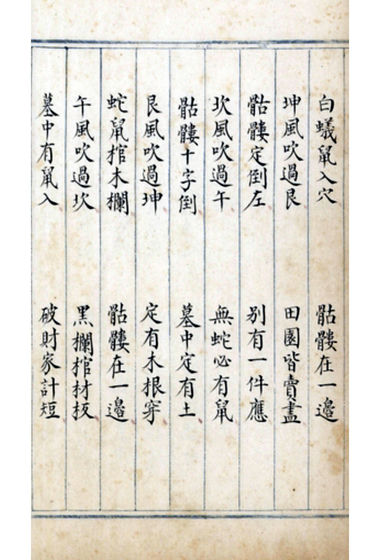 白蟻鼠入穴 骷髏在一邊
坤風吹過艮 田園皆賣盡
骷髏定倒左 別有一件應
坎風吹過午 無蛇必有鼠
骷髏十字倒 墓中定有土
艮風吹過坤 定有木根穿
蛇鼠棺木欄 骷髏在一邊
午風吹過坎 黑欄棺材板
墓中有鼠入 破財家計短